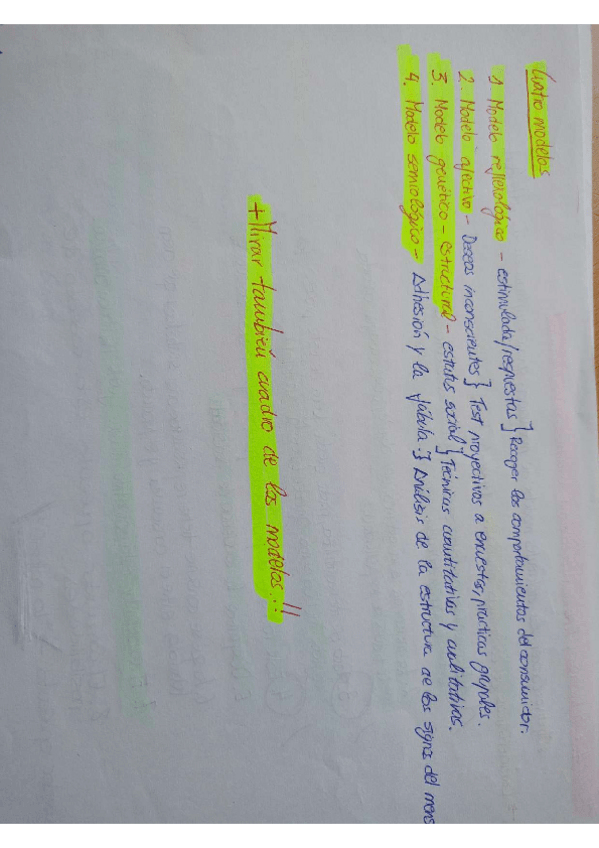 Cuatro modelos
1. Modelo reflexológico - estimulada/respuestas } Recoger los comportamientos del consumidor.
2. Modelo afectivo - Deseos inconscientes } Test proyectivos a encuestas, practicas grupales.
3. Modelo genético - estructural - estatus social } Técnicas cuantitativas y cualitativas.
4. Modelo semiológico - Adhesión y la fábula } Análisis de la estructura de los signos del mens
+ Mirar también cuadro de los modelos...!!